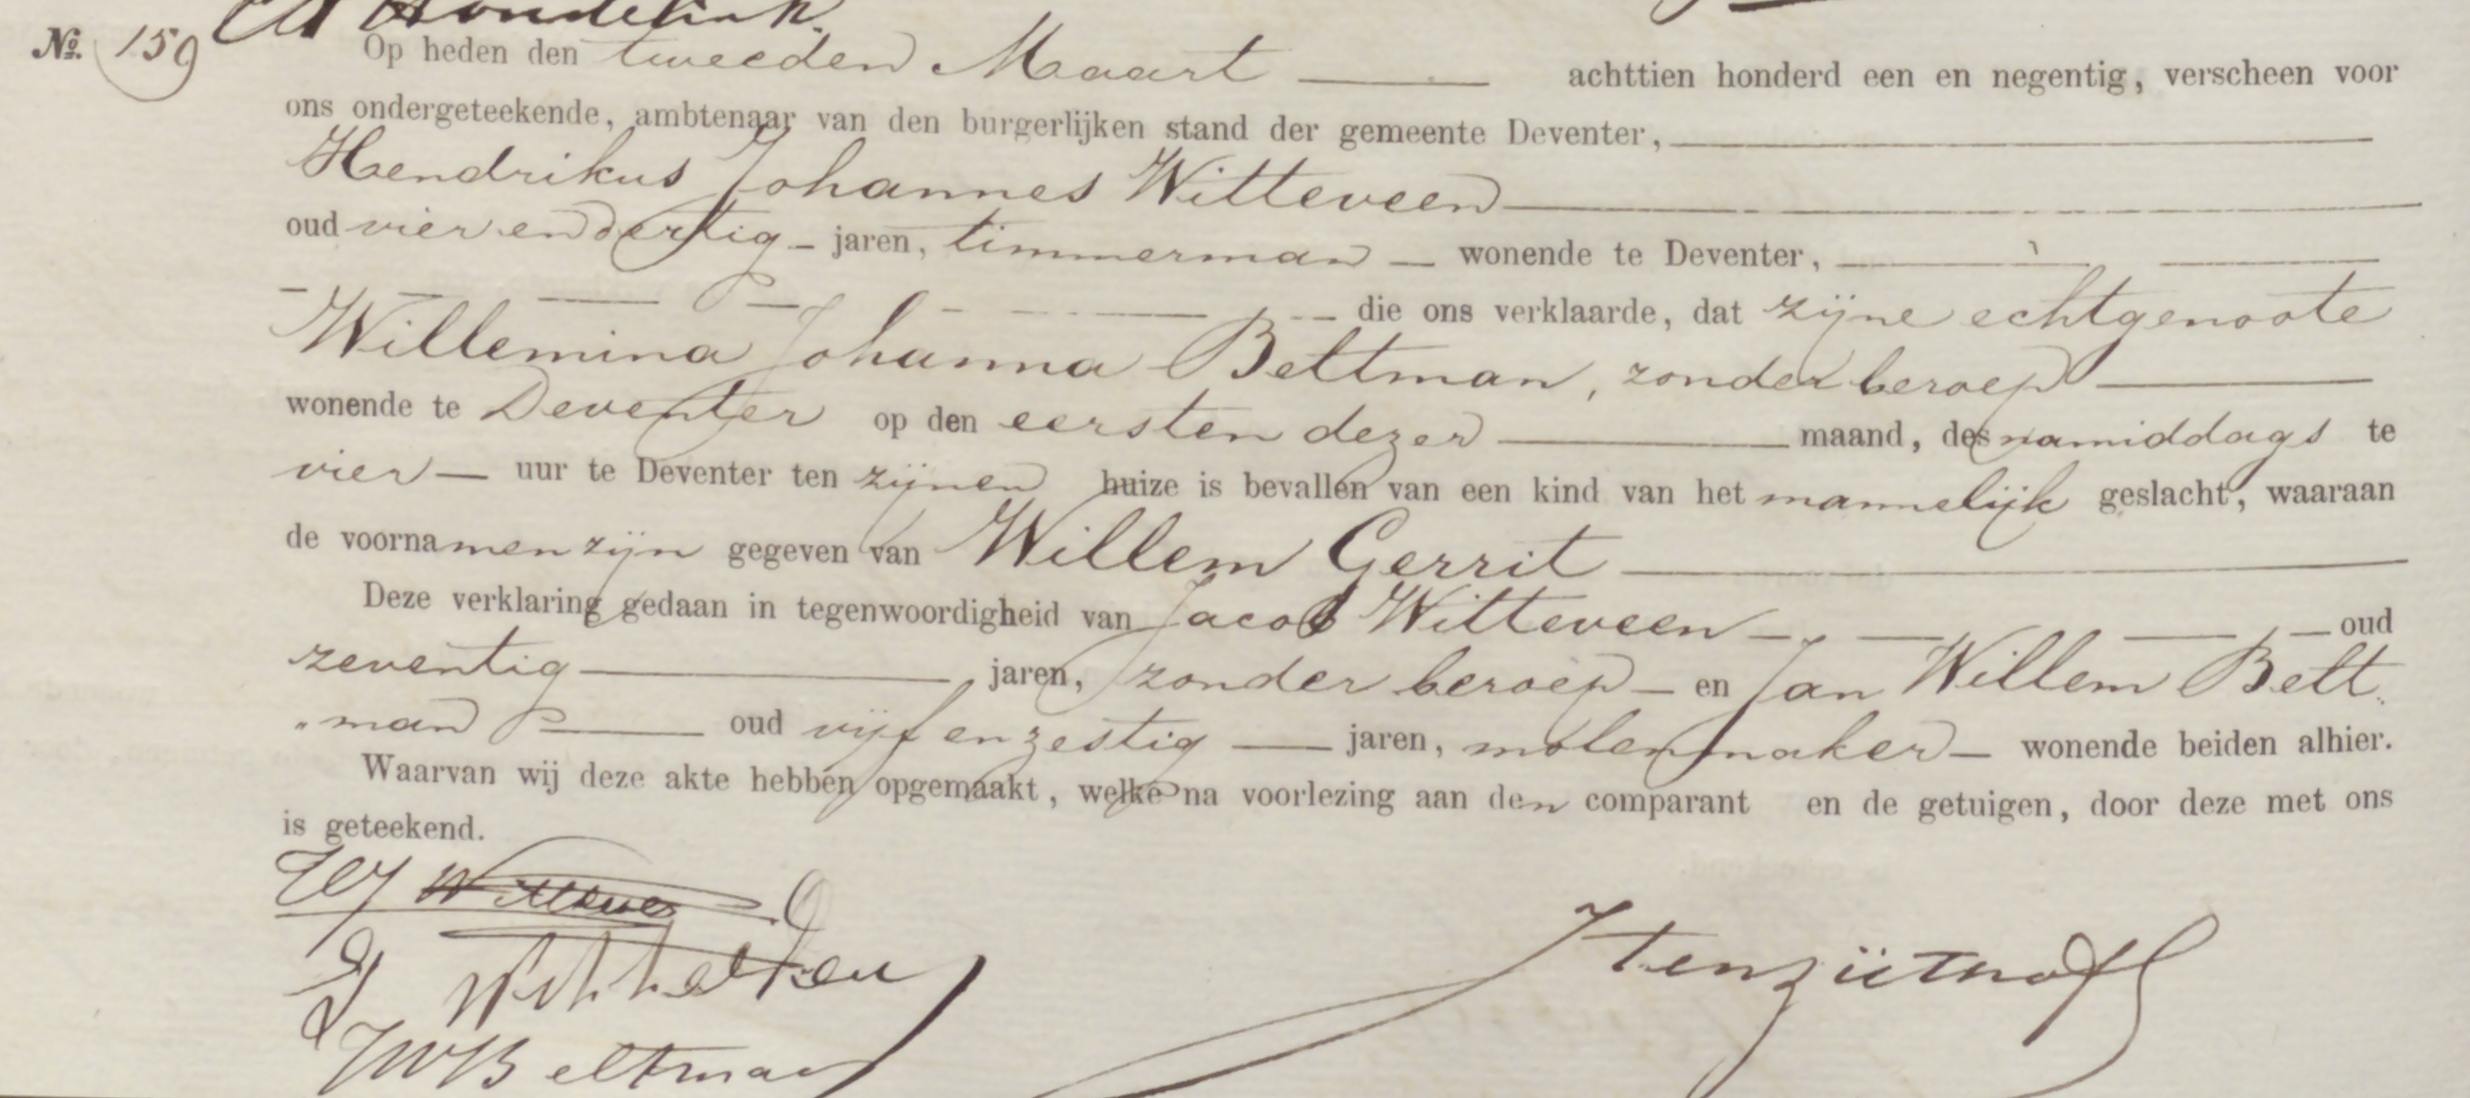 Hondelink.
No. 159
Op heden den tweeden Maart achttien honderd een en negentig, verscheen voor
ons ondergeteekende, ambtenaar van den burgerlijken stand der gemeente Deventer,
Hendrikus Johannes Witteveen
oud vier en dertig jaren, timmerman wonende te Deventer,
die ons verklaarde, dat zijne echtgenoote
Willemina Johanna Beltman, zonder beroep
wonende te Deventer op den eersten dezer maand, des namiddags te
vier uur te Deventer ten zijnen huize is bevallen van een kind van het mannelijk geslacht, waaraan
de voornamen zijn gegeven van Willem Gerrit
Deze verklaring gedaan in tegenwoordigheid van Jacob Witteveen oud
zeventig jaren, zonder beroep en Jan Willem Belt
"man oud vijf en zestig jaren, molenmaker wonende beiden alhier.
Waarvan wij deze akte hebben opgemaakt, welke na voorlezing aan den comparant en de getuigen, door deze met ons
is geteekend.
HJ Witteveen
J
JW Beltman